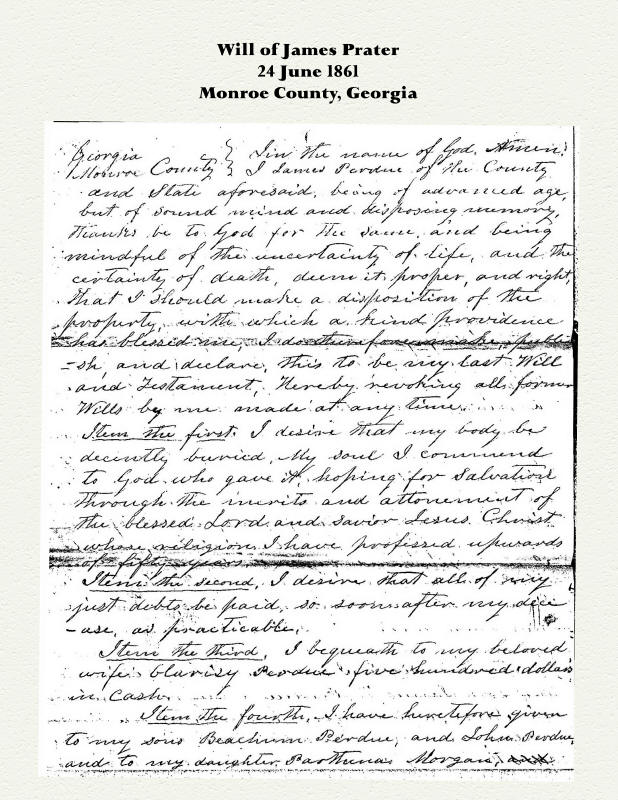 Will of James Prater
24 June 1861
Monroe County, Georgia
Georgia } In the name of God. Amen:
Monroe County } I James Perdue of the County
and State aforesaid, being of advanced age,
but of sound mind and disposing memory,
thanks be to God for the same, and being
mindful of the uncertainty of life, and the
certainty of death, deem it proper, and right,
that I should make a disposition of the
property, with which a kind providence
has blessed me, I do therefore make, publi
-sh, and declare, this to be my last Will
and Testament, Hereby revoking all former
Wills by me made at any time.
Item the first. I desire that my body be
decently buried, My soul I commend
to God who gave it, hoping for Salvation
through the merits and attonement of
the blessed Lord and Savior Jesus Christ
whose religion I have professed upwards
of fifty years.
Item the second, I desire that all of my
just debts be paid, so soon after my dece
-ase, as practicable,
Item the third, I bequeath to my beloved
wife Clarisy Perdue five hundred dollars
in Cash.
Item the fourth, I have heretofore given
to my sons Beachum Perdue, and John Perdue,
and to my daughter Parthena Morgan,